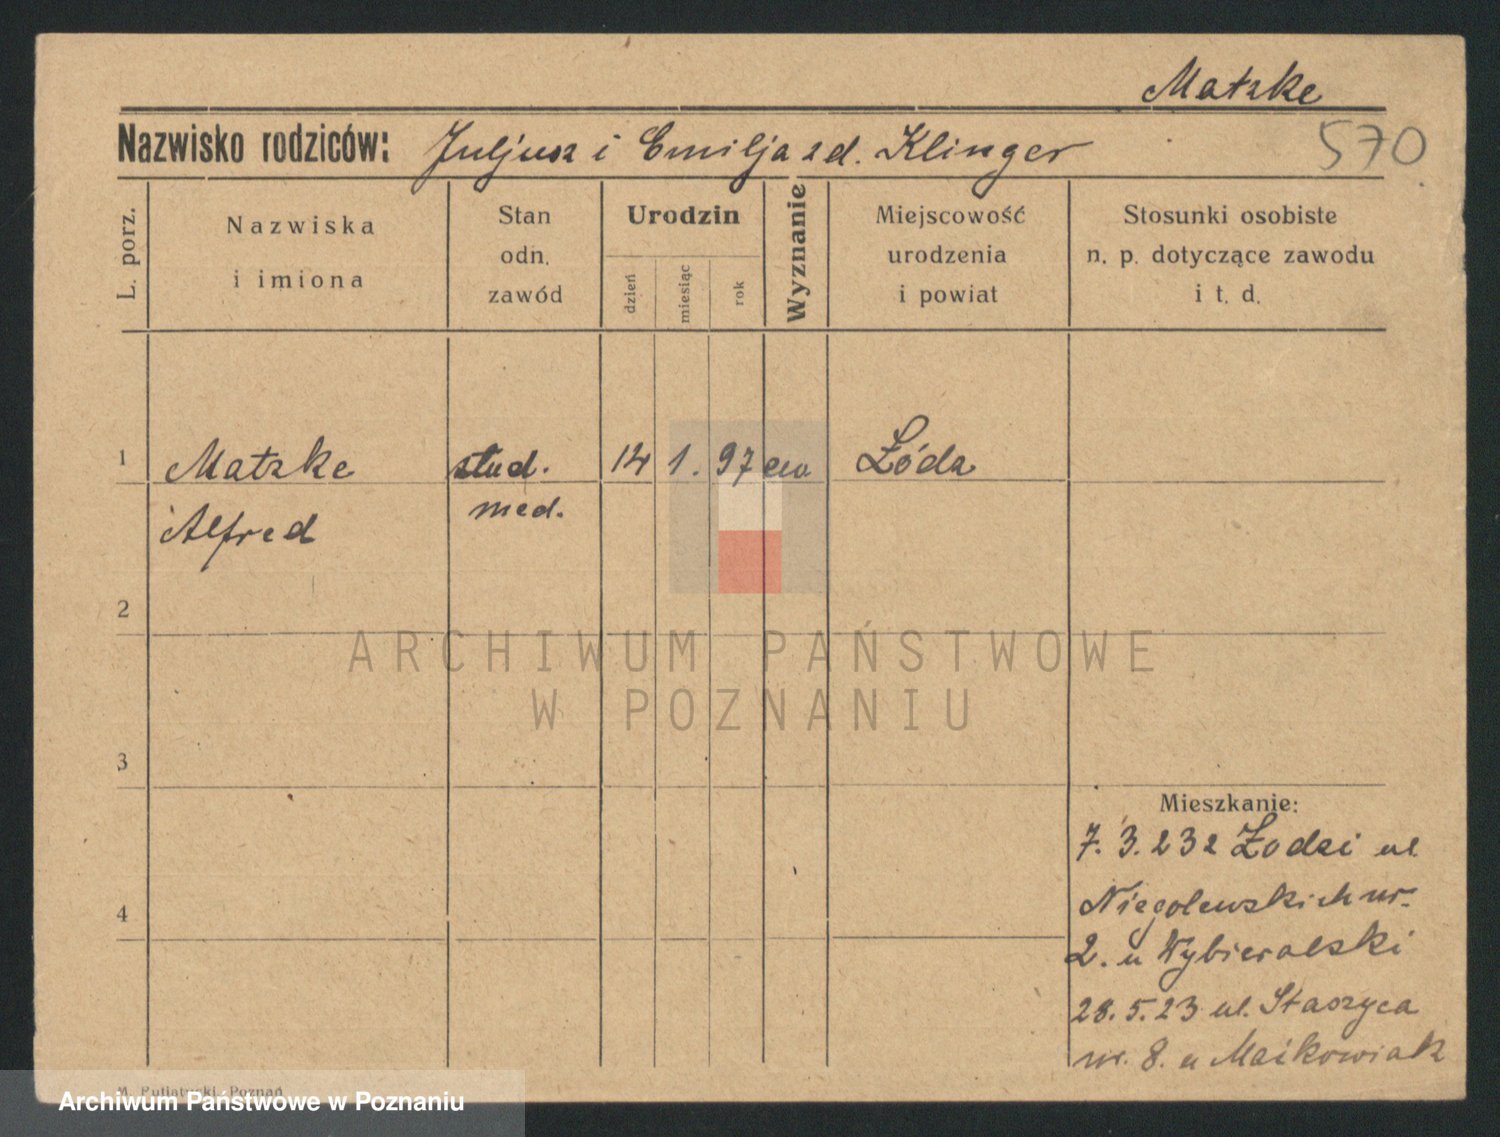 Matzke
Nazwisko rodziców: Juljusz i Emilja zd. Klinger
570
L. porz.
Nazwiska
i imiona
Stan
odn.
zawód
Urodzin
dzień
miesiąc
rok
Wyznanie
Miejscowość
urodzenia
i powiat
Stosunki osobiste
n. p. dotyczące zawodu
i t. d.
1 Matzke stud. 14 1. 97 ew Łóda
Alfred med.
2
ARCHIWUM PAŃSTWOWE
W POZNANIU
3
Mieszkanie:
7. 3. 23 z Łodzi ul.
Niegolewskich nr.
4
2. u Wybieralski
28. 5. 23 ul. Staszyca
nr. 8. u Maikowiak
M. Putiatycki, Poznań
Archiwum Państwowe w Poznaniu